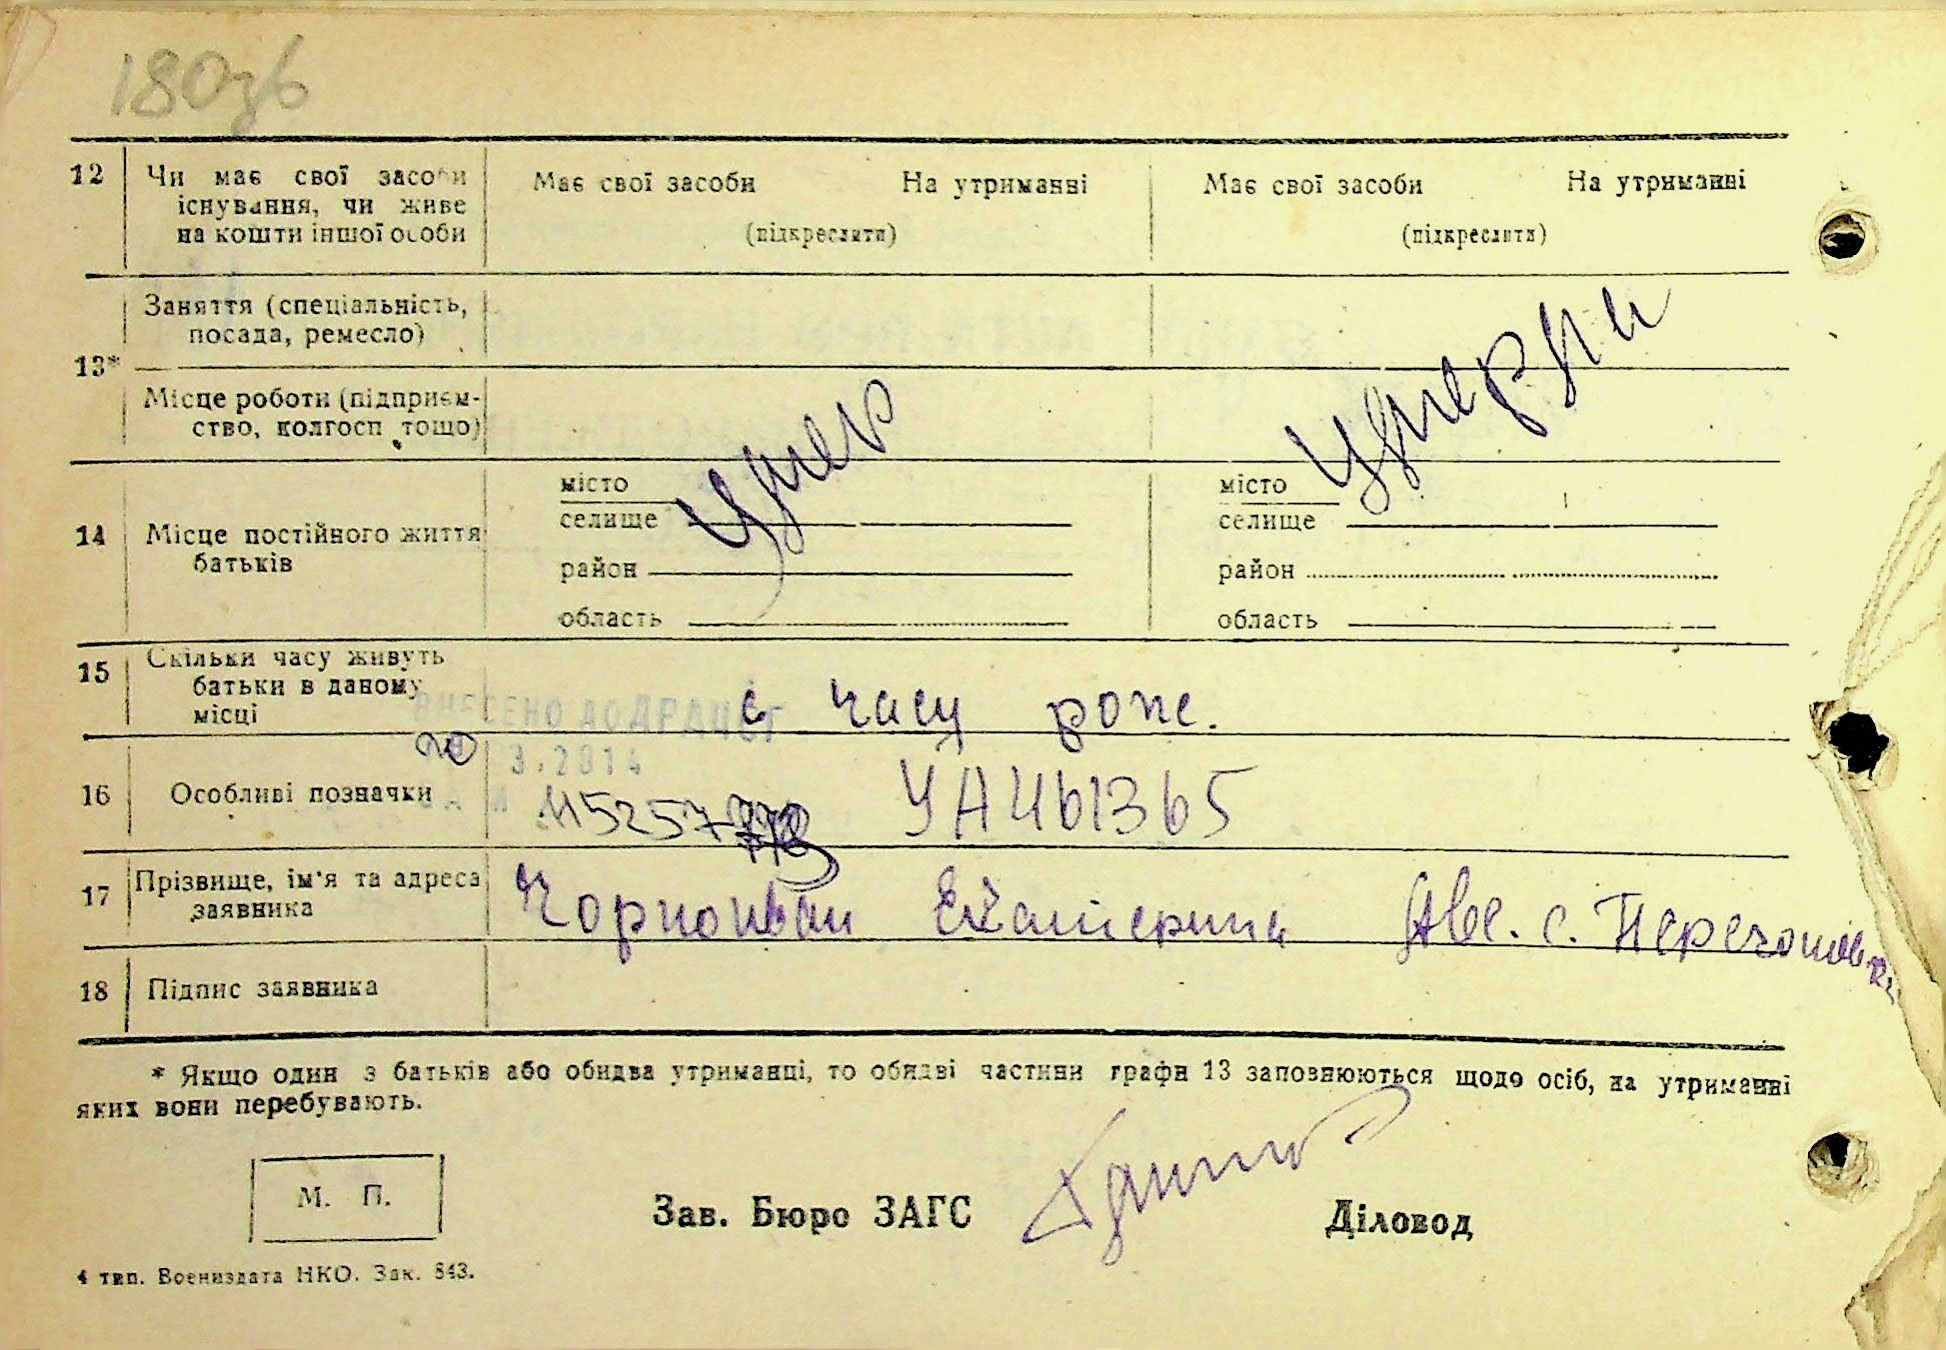 180зв
12 Чи має свої засоби Має свої засоби На утриманні Має свої засоби На утриманні
існування, чи живе
на кошти іншої особи (підкреслити) (підкреслити)
Заняття (спеціальність,
посада, ремесло)
13*
Місце роботи (підприєм-
ство, колгосп тощо)
умер умерли
місто місто
селище селище
14 Місце постійного життя
батьків
район район
область область
15 Скільки часу живуть
батьки в даному
місці с часу рожс.
ВНЕСЕНО ДО ДРАЦСГ
3.2014
16 Особливі позначки ЗА № 115257 УА461365
17 Прізвище, ім'я та адреса
заявника Чорноиван Екатерина Явс. с. Перечоповка
18 Підпис заявника
* Якщо один з батьків або обидва утриманці, то обидві частини графи 13 заповнюються щодо осіб, на утриманні
яких вони перебувають.
М. П.
Зав. Бюро ЗАГС Діловод
4 тип. Воениздата НКО. Зак. 843.